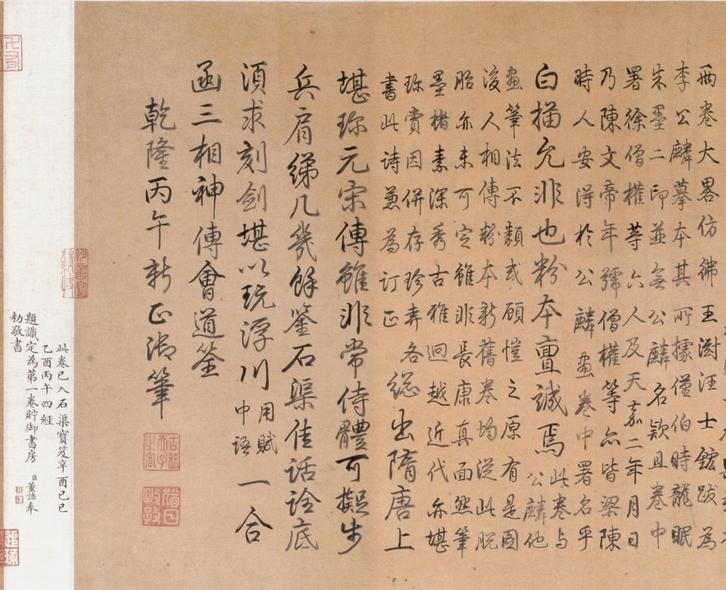 兩卷大畧仿彿王澍汪士鋐跋為
李公麟摹本其所據僅伯時龍眠
朱墨二印並無公麟名欵且卷中
署徐僧權等六人及天嘉二年月日
乃陳文帝年號僧權等亦皆梁陳
時人安得於公麟畫卷中署名乎
白描允非也粉本亶誠焉
此卷與公麟他
畫筆法不類或顧愷之原有是圖
後人相傳粉本新舊卷均從此脫
胎亦未可定雖非長康真面然筆
墨楮素深秀古雅迥越近代亦堪
珍賞因併存珍弆各
書此詩兼為訂正
總出隋唐上
堪珍元宋傳雖非常侍體可擬步
兵肩绨几幾餘鑒石渠佳話詮底
須求刻劍堪以玩浮川
用賦中語
一合
函三相神傳會道筌
乾隆丙午新正御筆
此卷已入石渠寶笈辛酉已巳
乙酉丙午四經
題識定為第一卷貯御書房
臣董誥奉
勅敬書